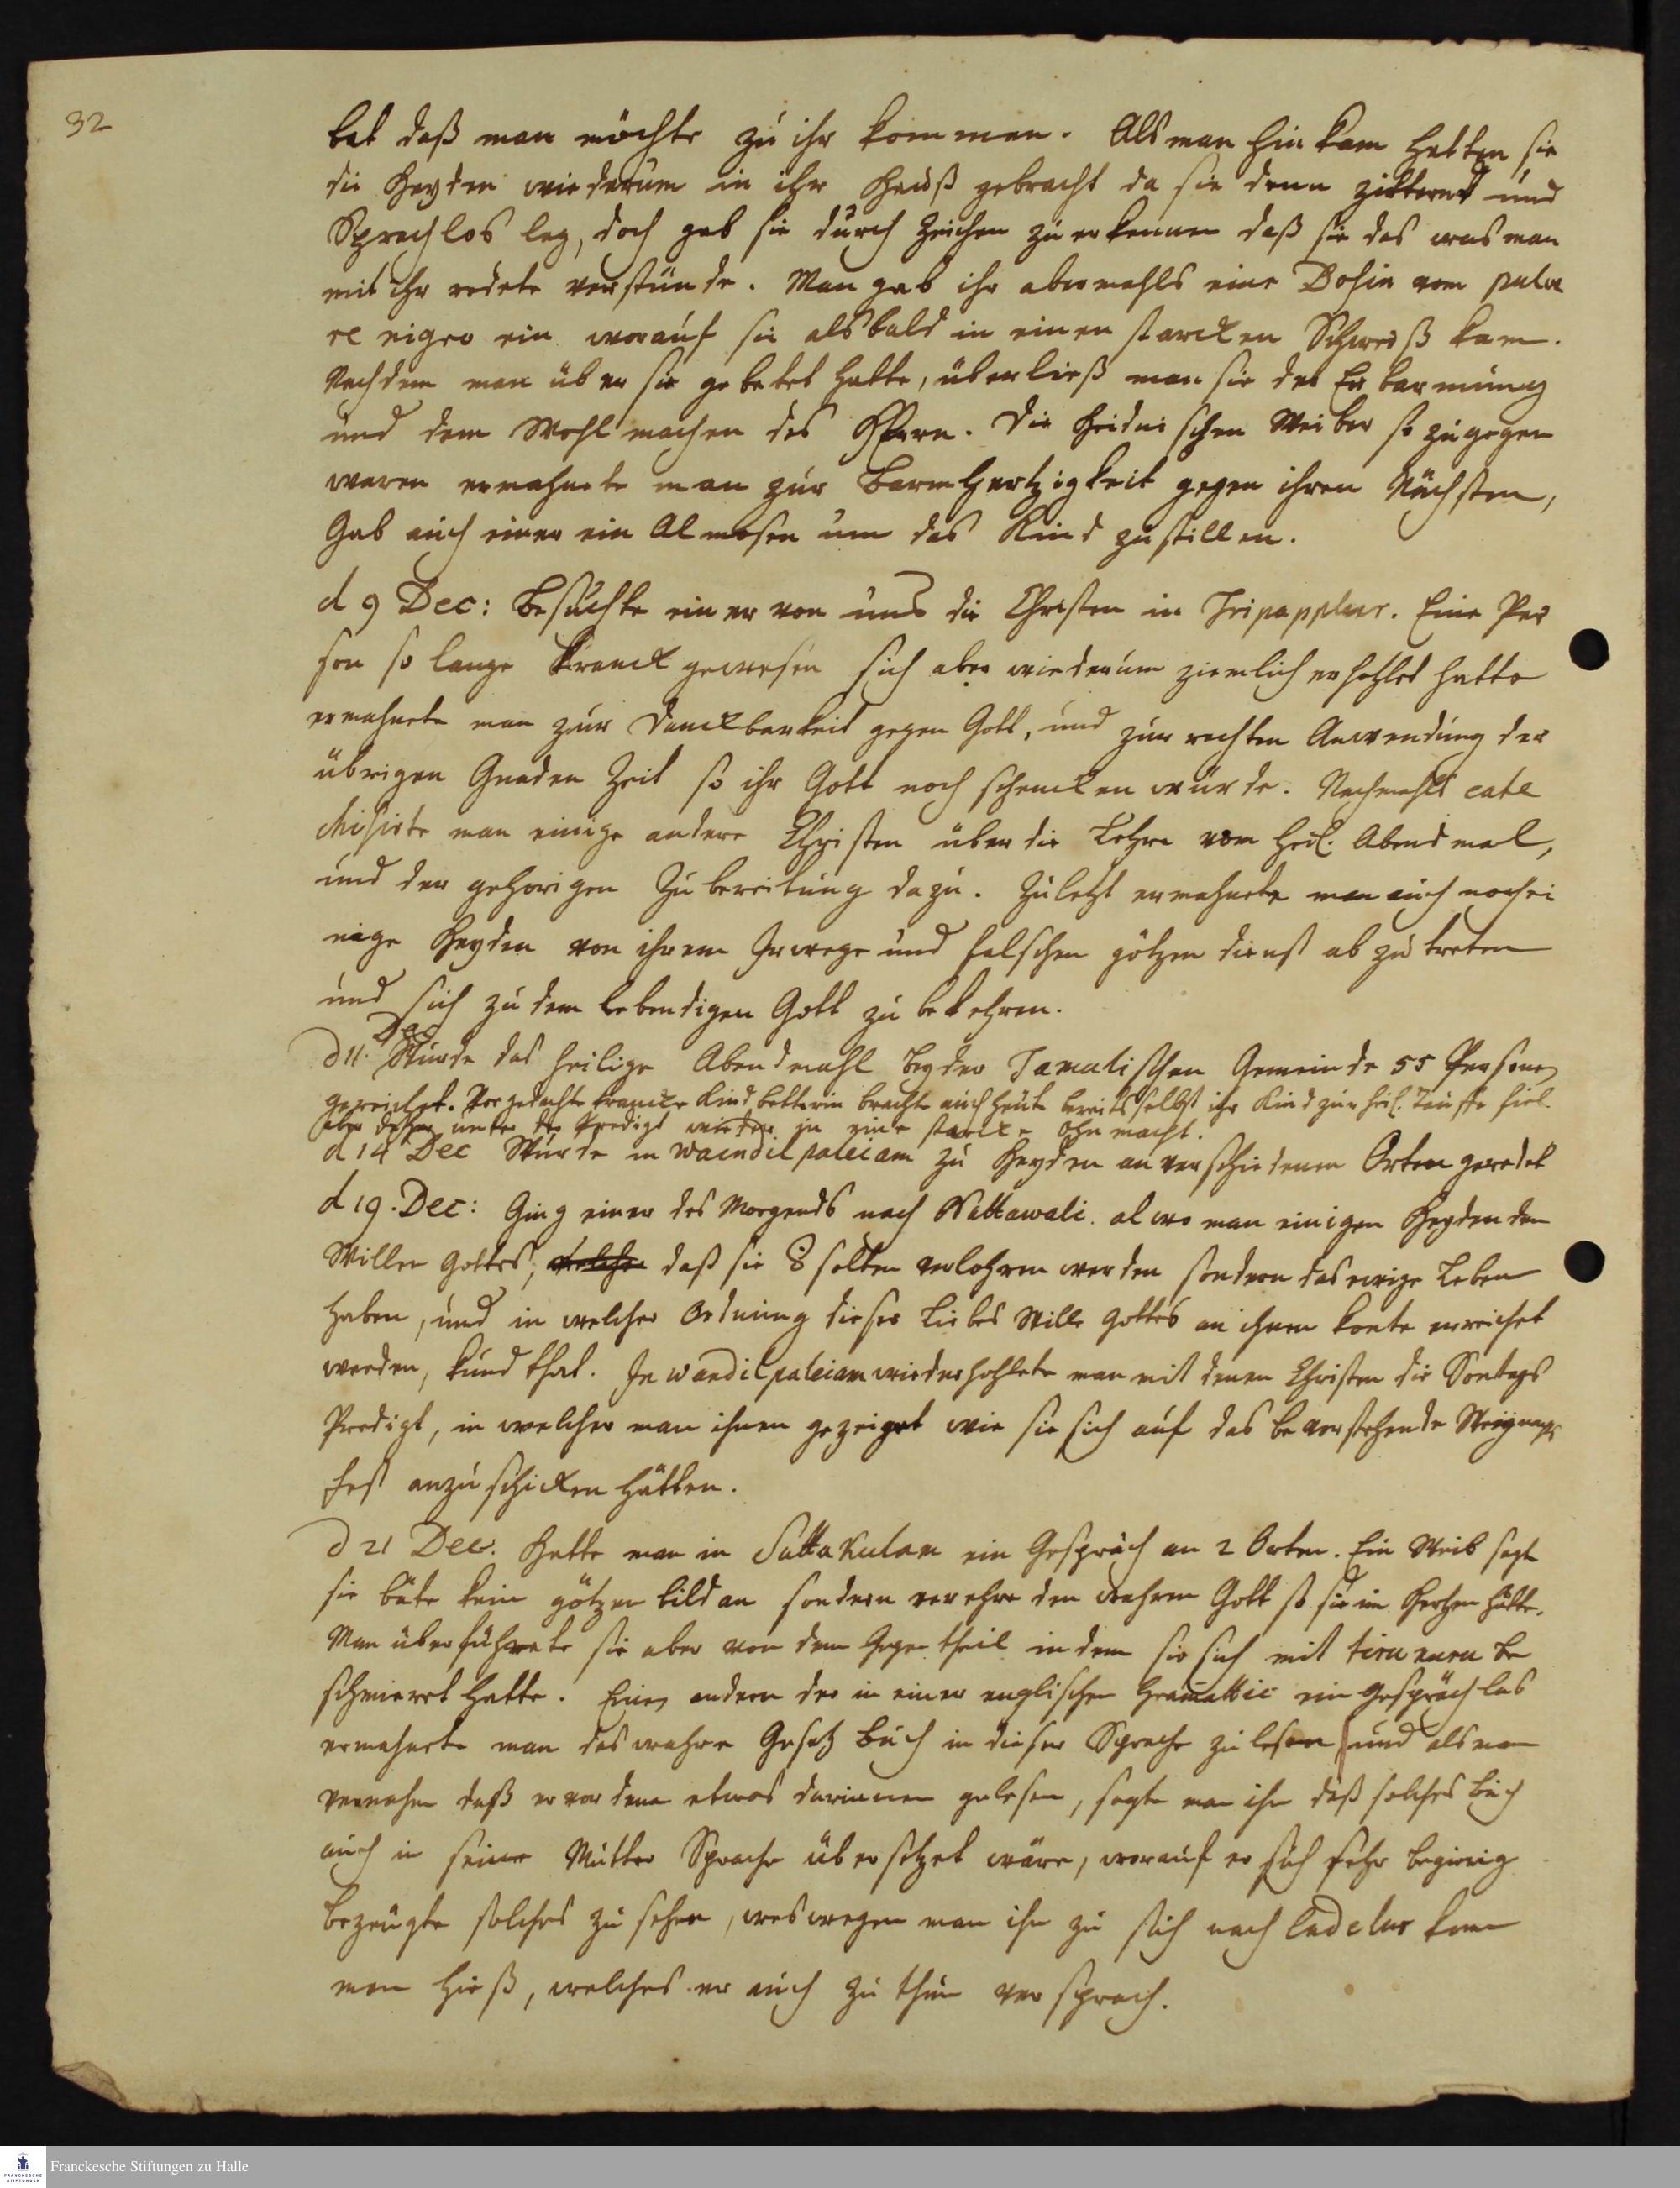 32
bat daß man möchte zu ihr kommen. Als man hin kam hatten sie
die Heyden wiederum in ihr Hauß gebracht da sie denn zitternd und
Sprachlos lag, doch gab sie durch Zeichen zu erkennen daß sie das was man
mit ihr redete verstünde. Man gab ihr abermahls eine Dosin vom pulve
re nigro ein worauf sie alsbald in einen starcken Schweiß kam.
Nachdem man über sie gebetet hatte, überließ man sie der Erbarmung
und dem Wohlmachen des HErrn. Die Heidnischen Weiber so zugegen
waren ermahnete man zur Barmhertzigkeit gegen ihren Nächsten,
Gab auch einer ein Almosen um das Kind zu stillen.
d 9 Dec: Besuchte einer von uns die Christen in Tripappluur. Eine Per
son so lange kranck gewesen sich aber wiederum ziemlich erhohlet hatte
ermahnete man zur Danckbarkeit gegen Gott, und zur rechten Anwendung der
übrigen Gnaden Zeit so ihr Gott noch schencken würde. Nachmahls cate
chisirte man einige andere Christen über die Lehre vom heil. Abendmal,
und der gehörigen Zubereitung dazu. Zuletzt ermahnete man auch noch ei
nige Heyden von ihrem Irwege und falschen götzendienst ab zu treten
und sich zu dem lebendigen Gott zu bekehren.
d 11. Dec Wurde das heilige Abendmahl bey der Tamulischen Gemeinde 55 Personen
gereichet. Vorgedachte krancke Kindbetterin brachte auch heute bereits selbst ihr Kind zur heil. Tauffe fiel
aber unter der Predigt wieder in eine starcke Ohnmacht.
d 14 Dec Wurde in Waendilpaleiam zu Heyden an verschiedenen Orten geredet
d 19. Dec: Ging einer des Morgends nach Wattawali. alwo man einigen Heyden den
Willen Gottes, welcher daß sie solten verlohren werden sondern das ewige Leben
haben, und in welcher Ordnung dieser Liebes Wille Gottes an ihnen konte erreichet
werden, kund that. In Wandilpaleiam wiederhohlete man mit denen Christen die Sontags
Predigt, in welcher man ihnen gezeiget wie sie sich auf das bevorstehende Weynachts
fest anzuschicken hätten.
d 21 Dec. Hatte man in Sattakulam ein Gespräch an 2 Orten. Ein Weib sagte
sie bäte kein götzenbild an sondern verehre den wahren Gott so sie im Hertzen hätte.
Man überführete sie aber von dem Gegentheil indem sie sich mit tirunuru be
schmieret hatte. Einen andern der in einer englischen Grammattic ein Gespräch las
ermahnete man das wahre Gesetz Buch in dieser Sprache zu lesen und als man
vernahm daß er vor dem etwas darinnen gelesen, sagte man ihm daß solches Buch
auch in seine Mutter Sprache übersetzet wäre, worauf er sich sehr begierig
bezeugte solches zu sehen, weswegen man ihn zu sich nach Cudelur kom
men hieß, welches er auch zu thun versprach.
FRANCKESCHE
STIFTUNGEN
Franckesche Stiftungen zu Halle